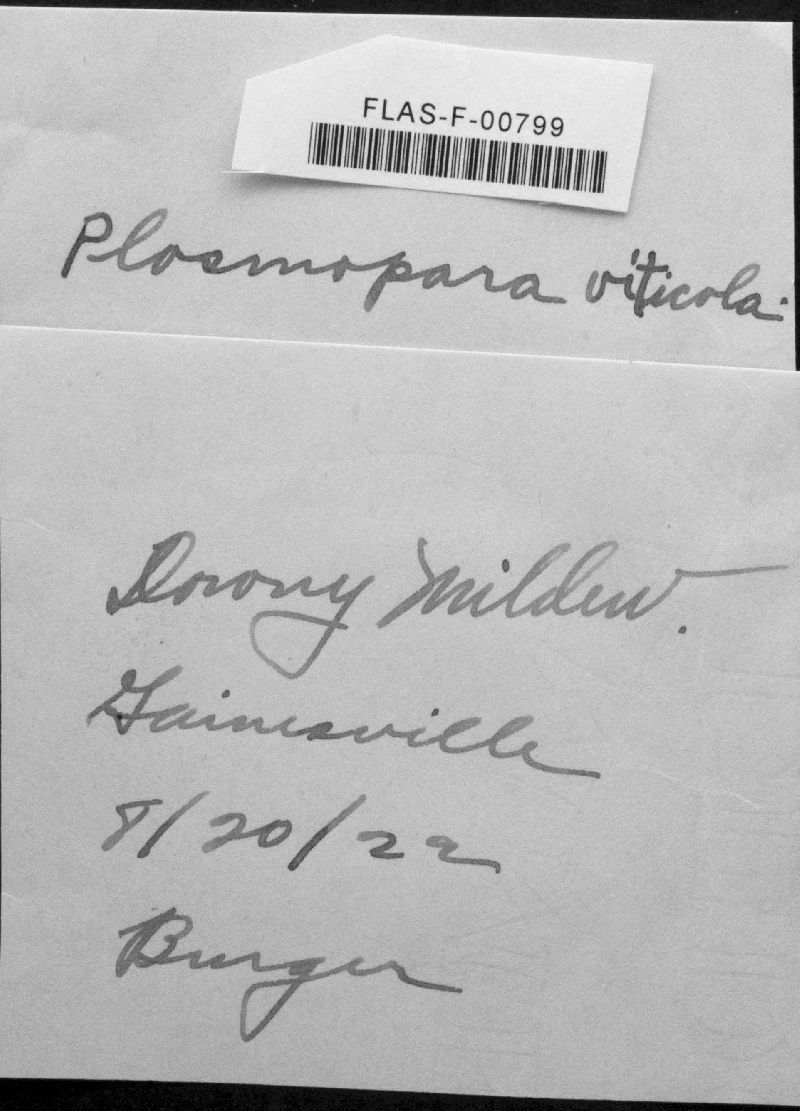 FLAS-F-00799
Plasmopara viticola.
Downy Mildew.
Gainesville
8/20/22
Burger